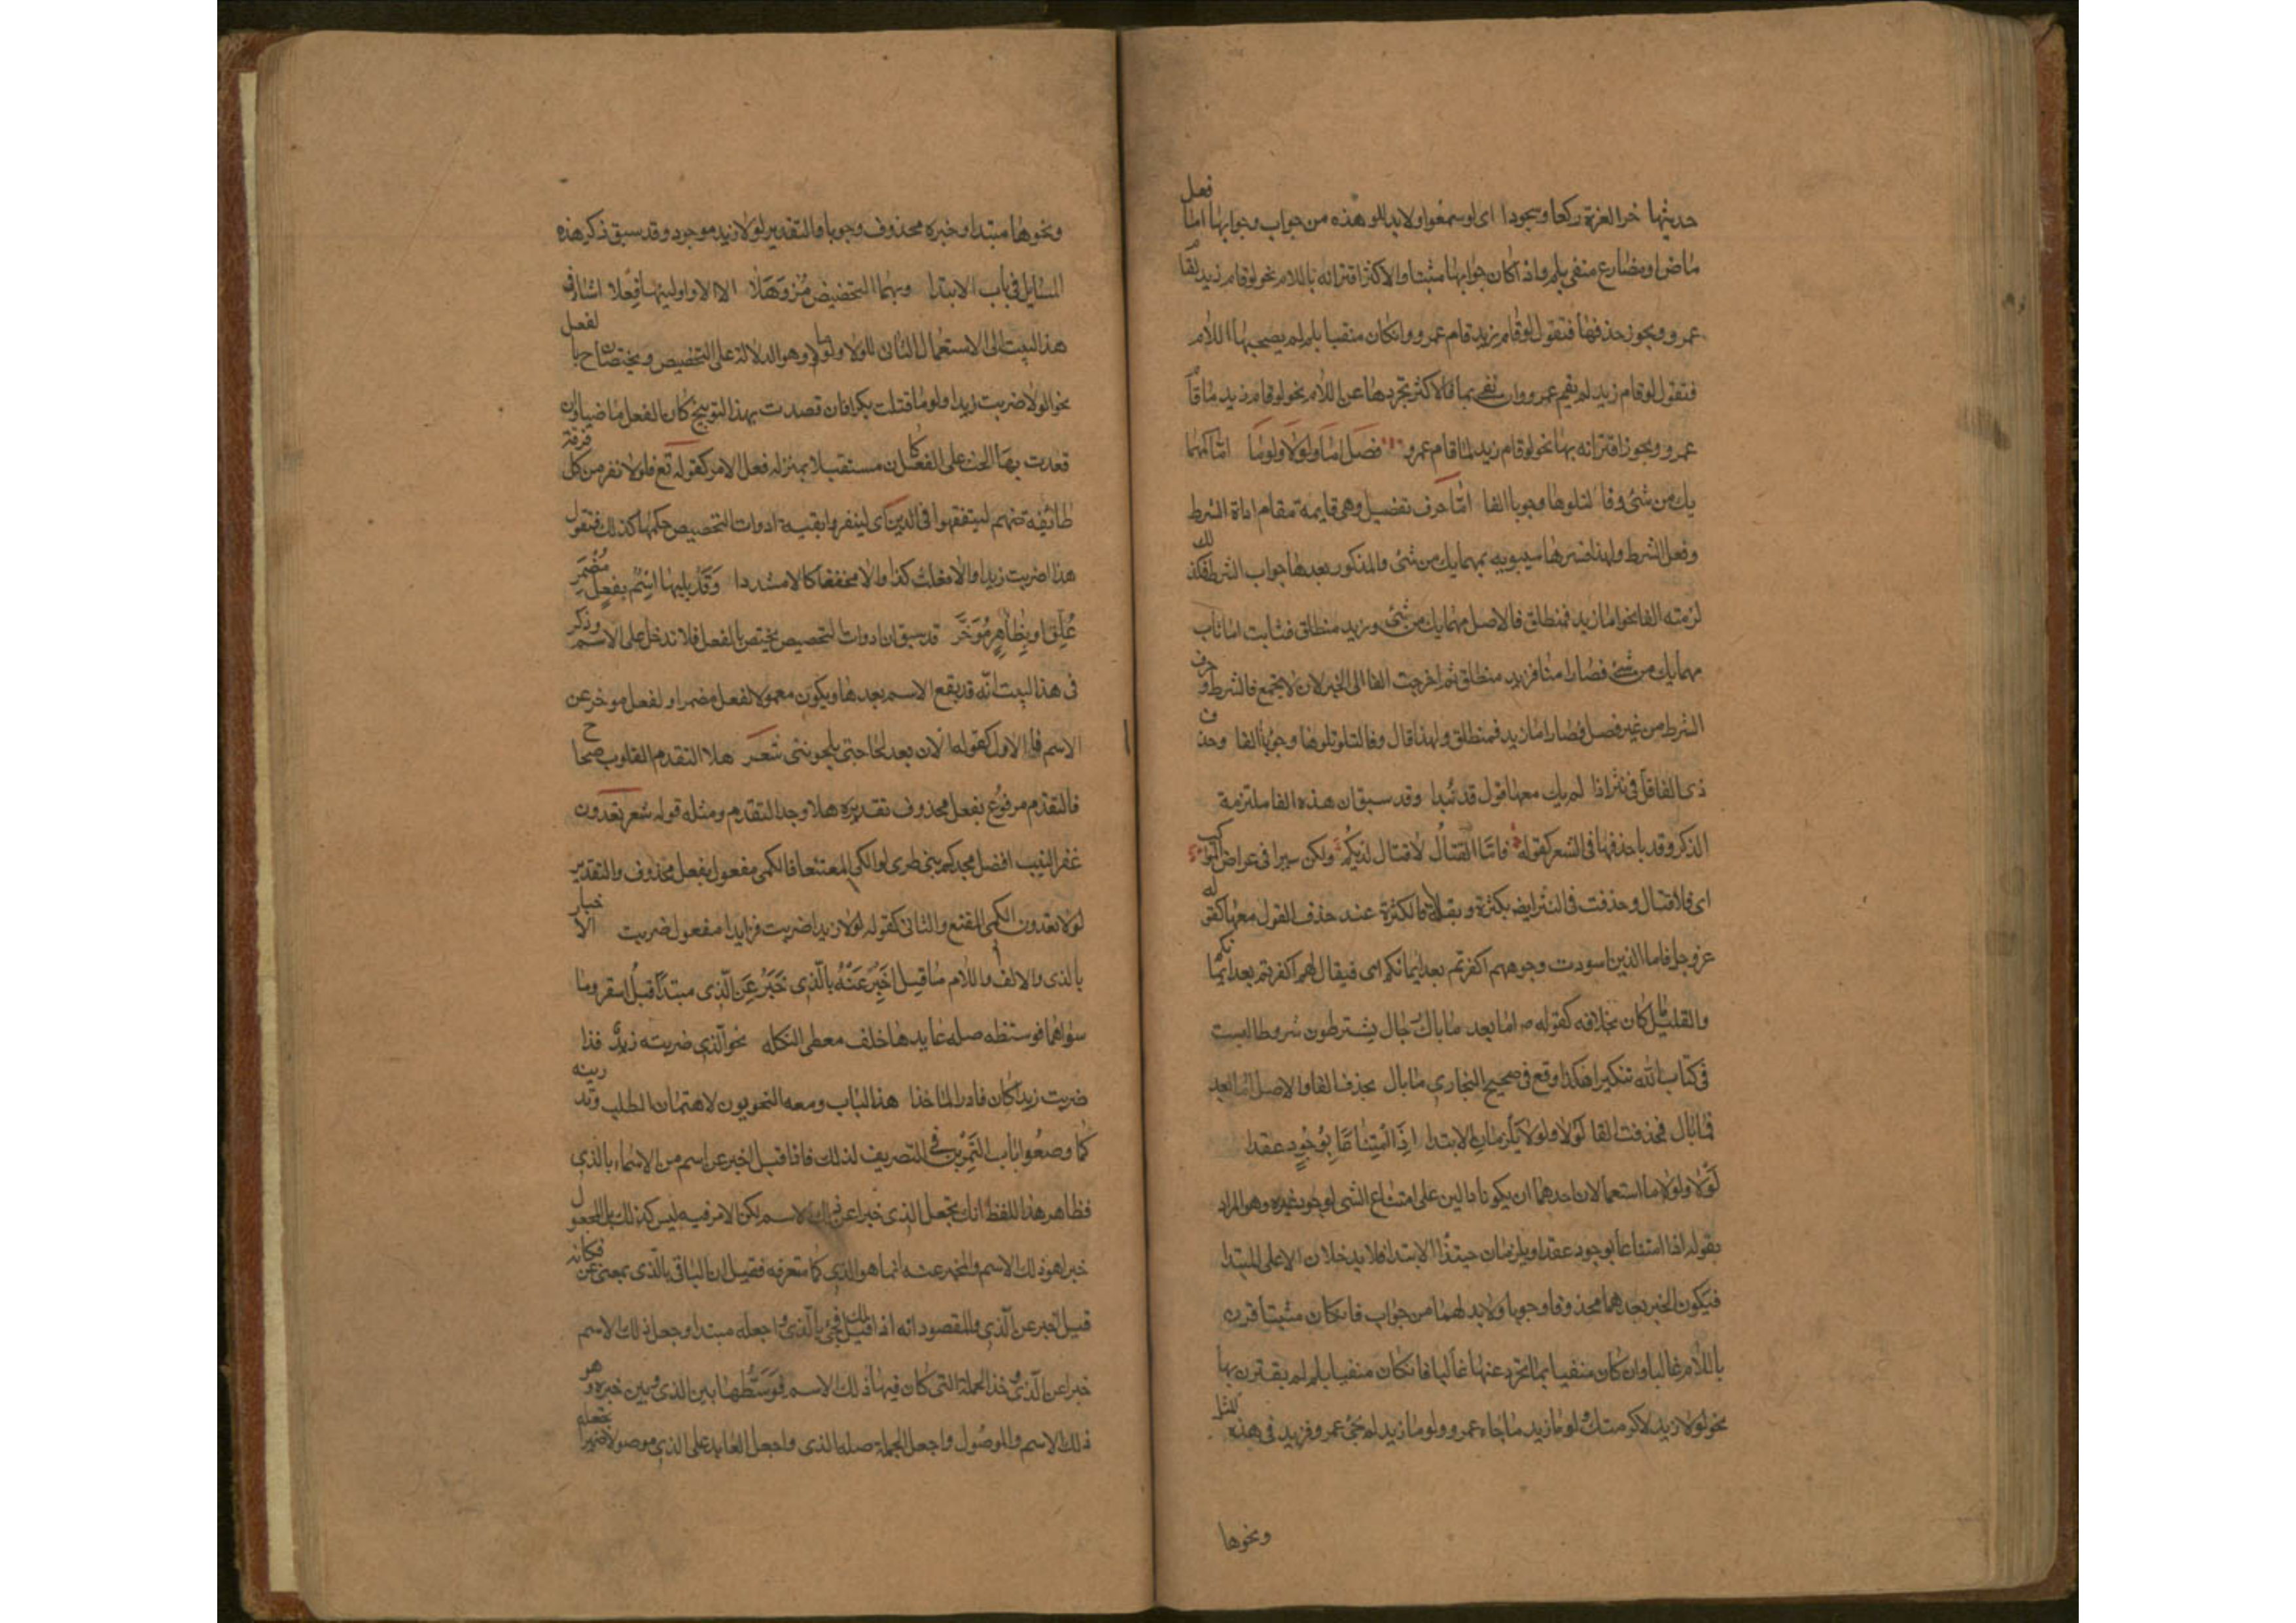 حديثها خروا لعزة ركعا وسجودا اى لو سمعوا ولا بد للو هذه من جواب وجوابها اما فعل
ماض او مضارع منفى بلم واذا كان جوابها مثبتا والاكثر اقترانه باللام نحو لو قام زيد لقام
عمرو ويجوز حذفها فتقول لو قام زيد قام عمرو وانكان منفيا بلم لم يصحبها اللام
فتقول لو قام زيد لم يقم عمرو وان نفى بما فالاكثر تجردها عن اللام نحو لو قام زيد ما قام
عمرو ويجوز اقترانه بها نحو لو قام زيد لما قام عمرو فصل اما ولولا ولوما اما كمهما
يك من شئ وفا لتلوها وجوبا الفا اما حرف تفصيل وهى قايمة مقام اداة الشرط
وفعل الشرط ولهذا فسرها سيبويه بمهما يك من شئ والمذكور بعدها جواب الشرط فلذلك
لزمته الفا نحو اما زيد فمنطلق فالاصل مهما يك من شئ وزيد منطلق فنابت اما مناب
مهما يك من شئ فصار اما فزيد منطلق ثم اخرجت الفا الى الخبر لان لا يجمع فا الشرط وحرف
الشرط من غير فصل فصار اما زيد فمنطلق ولهذا قال وفا لتلو تلوها وجوبا الفا وحذف
ذى الفا قل فى نثر اذا لم يك معها قول قد نبذا وقد سبق ان هذه الفا ملتزمة
الذكر وقد يا حذفها فى الشعر كقوله فاما القتال لا قتال لديكم ولكن سيرا فى عراض المواكب
اى فلا قتال وحذفت فى النثر ايضا بكثرة وبقلة فالكثرة عند حذف القول معها كقوله
عز وجل فاما الذين اسودت وجوههم اكفرتم بعد ايمانكم اى فيقال لهم اكفرتم بعد ايمانكم
والقليل ما كان بخلافه كقوله ص اما بعد ما بال رجال يشترطون شروطا ليست
فى كتاب الله تنكيرا هكذا وقع فى صحيح البخارى ما بال بحذف الفا والاصل اما بعد
فما بال فحذفت الفا لولا ولوما يلزمان الابتدا اذا امتناعا بوجود عقدا
لولا ولوما استعمالان احدهما ان يكونا دالين على امتناع الشى لوجود غيره وهو المراد
بقوله اذا امتناعا بوجود عقدا ويلزمان حينئذ الابتدا فلا يدخلان الا على المبتدا
فيكون الخبر بعدهما محذوفا وجوبا ولا بد لهما من جواب فانكان مثبتا قرن
باللام غالبا وان كان منفيا بما تجرد عنها غالبا فانكان منفيا بلم لم يقترن بها
نحو لولا زيد لاكرمتك ولوما زيد ما جاء عمرو ولوما زيد لم يجئ عمرو فزيد فى هذه المثل
ونحوها
ونحوها مبتدا وخبره محذوف وجوبا والتقدير لولا زيد موجود وقد سبق ذكر هذه
المسايل فى باب الابتدا وبهما التحضيض مز وهلا الا الا واولينها فعلا اشار فى
هذا البيت الى الاستعمال الثانى للولا ولوما وهو الدلالة على التحضيض ويختصان ح بالفعل
نحو لولا ضربت زيدا ولوما قتلت بكرا فان قصدت بهذا التوبيخ كان الفعل ماضيا وان
قصدت بها الحث على الفعل كان مستقبلا بمنزله فعل الامر كقوله تع فلولا نفر من كل فرقة
طائفة منهم ليتفقهوا فى الدين اى لينفر وبقية ادوات التحضيض حكمها كذلك فتقول
هذا ضربت زيدا والا فعلت كذا والا مخففة كالا مشددا وقد يليها اسم بفعل مضمر
علق او بظاهر مؤخر قد سبق ان ادوات التحضيض يختص بالفعل فلا تدخل على الاسم وذكر
فى هذا البيت انه قد يقع الاسم بعدها ويكون معمولا لفعل مضمر او لفعل موخر عن
الاسم فالاول كقوله الان بعد لجاجتى يلحوننى شعر هلا التقدم القلوب صحاح
فالتقدم مرفوع بفعل محذوف تقديره هلا وجد التقدم ومثله قوله شعر تعدون
عقر النيب افضل مجدكم بنى ضوطرى لولا الكمى المقنعا فالكمى مفعول بفعل محذوف والتقدير
لولا تعدون الكمى المقنع والثانى كقوله لولا زيدا ضربت فزيدا مفعول ضربت الاخبار
بالذى والالف واللام ما قيل اخبر عنه بالذى خبر عن الذى مبتدا قبل استقر وما
سواهما فوسطه صله عايدها خلف معطى التكمله نحو الذى ضربته زيد فذا
ضربت زيدا كان فادر الماخذا هذا الباب وضعه النحويون لامتحان الطلب وتدريبه
كما وضعوا باب التمرين فى التصريف لذلك فاذا قيل اخبر عن اسم من الاسماء بالذى
فظاهر هذا اللفظ انك تجعل الذى خبرا عن ذلك الاسم لكن الامر فيه ليس كذلك بل المجعول
خبرا هو ذلك الاسم والمخبر عنه انما هو الذى كما ستعرفه فقيل ان الباقى بالذى بمعنى عن فكانه
قيل اخبر عن الذى والمقصود انه اذا قيل لك فجئ بالذى واجعله مبتدا وجعل ذلك الاسم
خبرا عن الذى وخذ الجملة التى كان فيها ذلك الاسم فوسطها بين الذى وبين خبره وهو
ذلك الاسم والوصول واجعل الجملة صله الذى واجعل العايد على الذى موصولا ضميرا تجعله